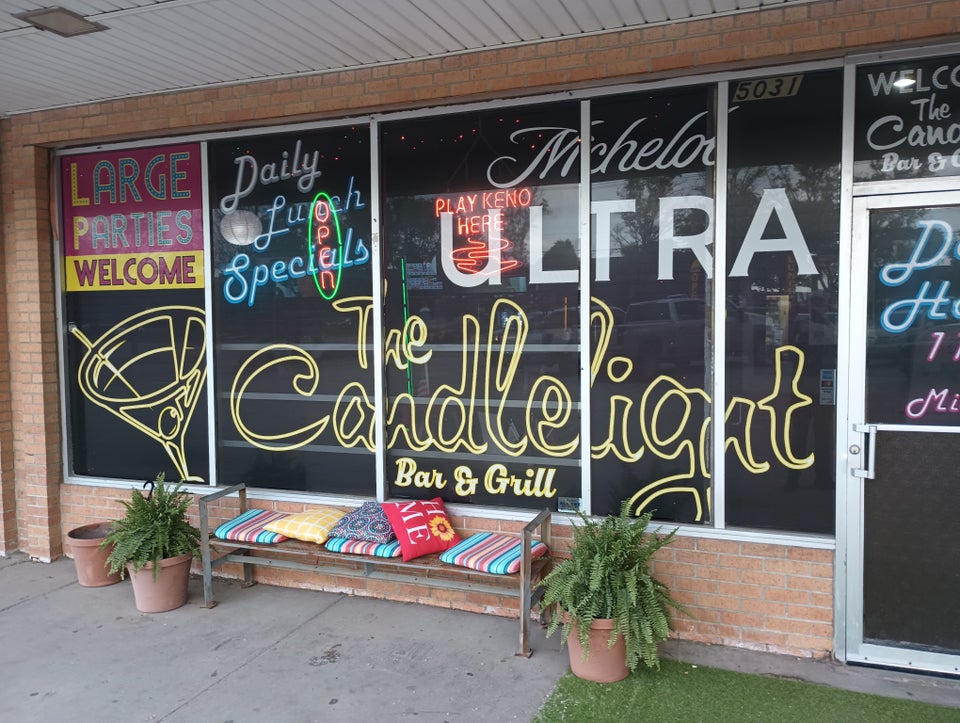 LARGE
PARTIES
WELCOME
Daily
Lunch
Specials
OPEN
PLAY KENO
HERE
Michelob
ULTRA
5031
The
Candlelight
Bar & Grill
HOME
WELCO
The
Cand
Bar & G
Da
Ha
11
Mi